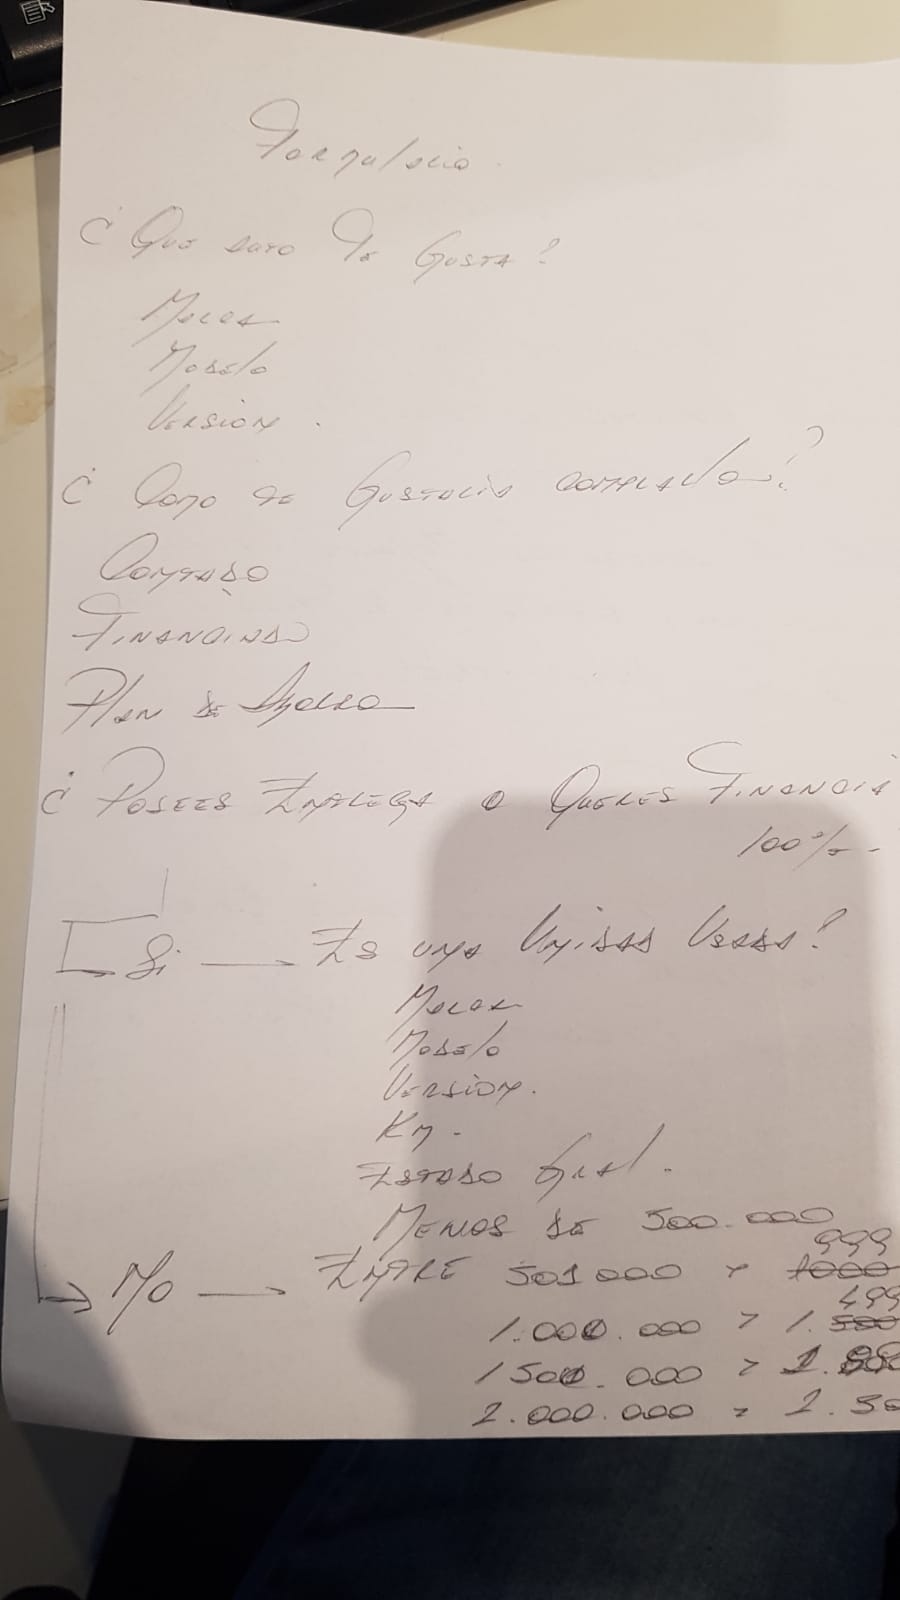 Formulario.
¿ Que auto Te Gusta?
Marca
Modelo
Version.
¿ Como te Gustaria comprarlo?
Contado
Financiado
Plan de Ahorro
¿ Posees Entrega o Queres Financia
100%.
Si → Es una Unidad Usada?
Marca
Modelo
Version.
Km.
Estado Gral.
Menos de 500.000
999
No → Entre 501000 y 1000
499
1.000.000 > 1.500
1500.000 >
2.000.000 = 2.50